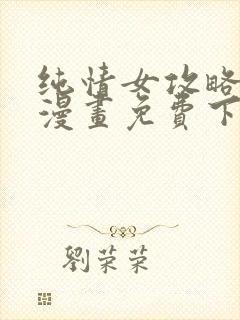 纯情女攻略
漫畫免費下
劉荣荣